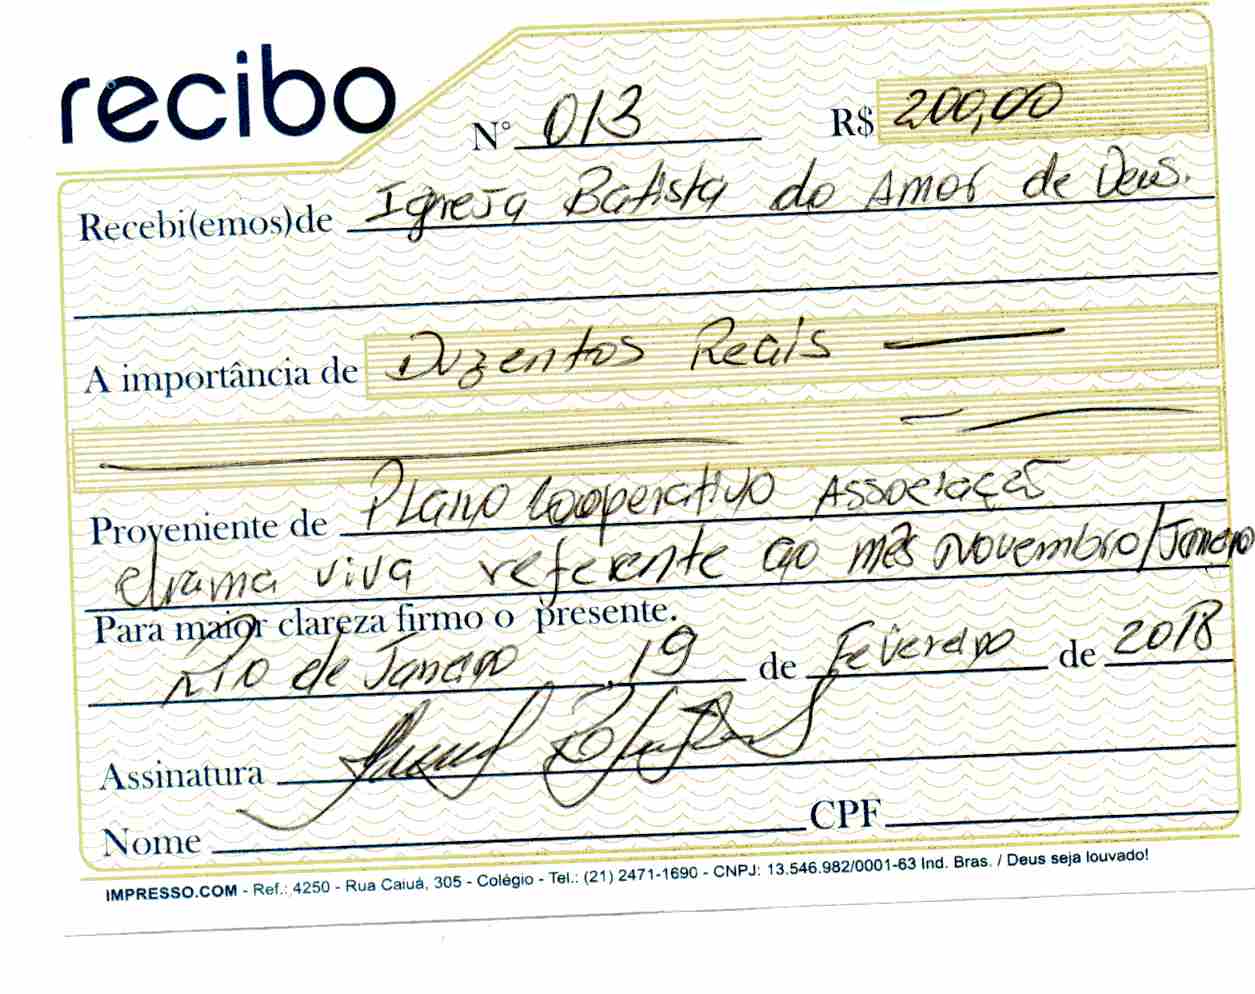 recibo
N° 013 R$ 200,00
Recebi(emos)de Igreja Batista do Amor de Deus.
A importância de Duzentos Reais
Proveniente de Plano Cooperativo Associação
viva referente ao mês Novembro/Janeiro
Para maior clareza firmo o presente.
Rio de Janeiro, 19 de Fevereiro de 2018
Assinatura
Nome CPF
IMPRESSO.COM - Ref.: 4250 - Rua Caiuá, 305 - Colégio - Tel.: (21) 2471-1690 - CNPJ: 13.546.982/0001-63 Ind. Bras. / Deus seja louvado!